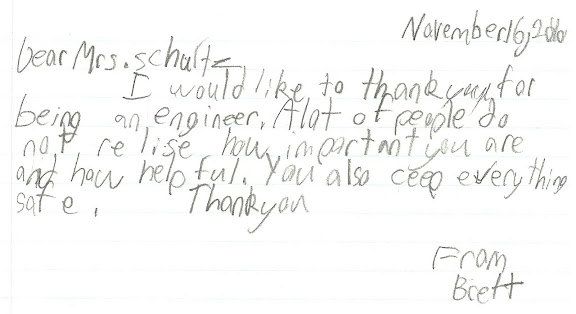 November 16, 2010
Dear Mrs. Schultz
I would like to thankyou for
being an engineer. Alot of people do
not relise how important you are
and how helpful. You also ceep everything
safe. Thankyou
From
Brett